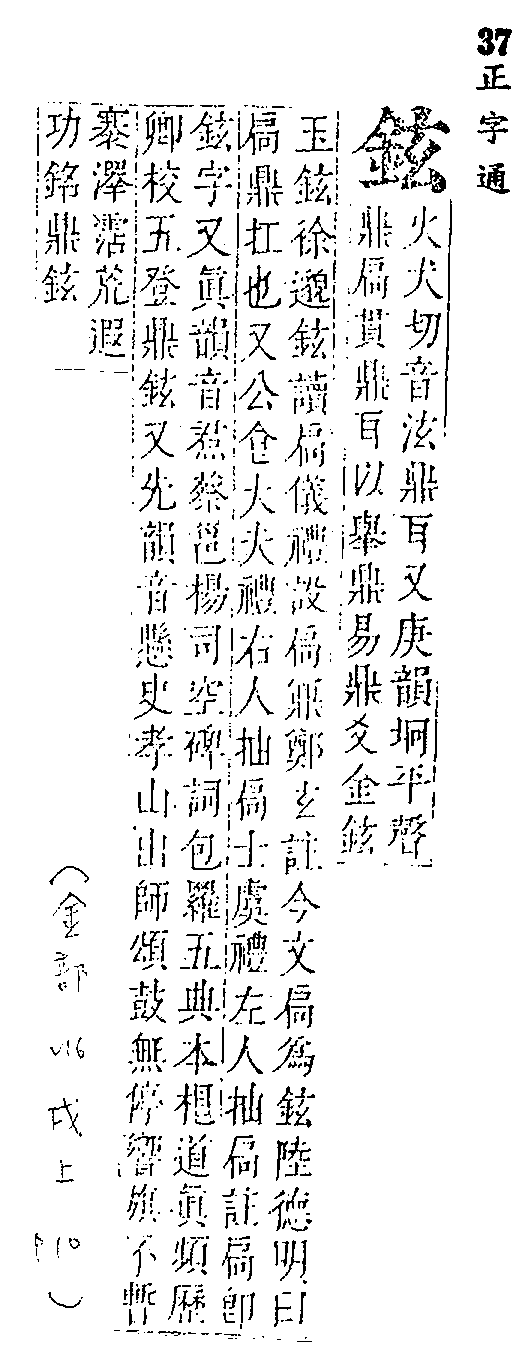 37 正字通
鉉
火犬切音泫鼎耳又庚韻坰平聲
鼎扃貫鼎耳以舉鼎易鼎爻金鉉
玉鉉徐邈鉉讀扃儀禮設扃鼏鄭玄註今文扃為鉉陸德明曰
扃鼎扛也又公食大夫禮右人抽扃士虞禮左人抽扃註扃即
鉉字又眞韻音 蔡邕揚司空碑詞包羅五典本桓道眞頻歷
卿校五登鼎鉉又先韻音懸史孝山出師頌鼓無停響旗不暫
褰澤霑荒遐
功銘鼎鉉
(金部 V16 戌上 P10)